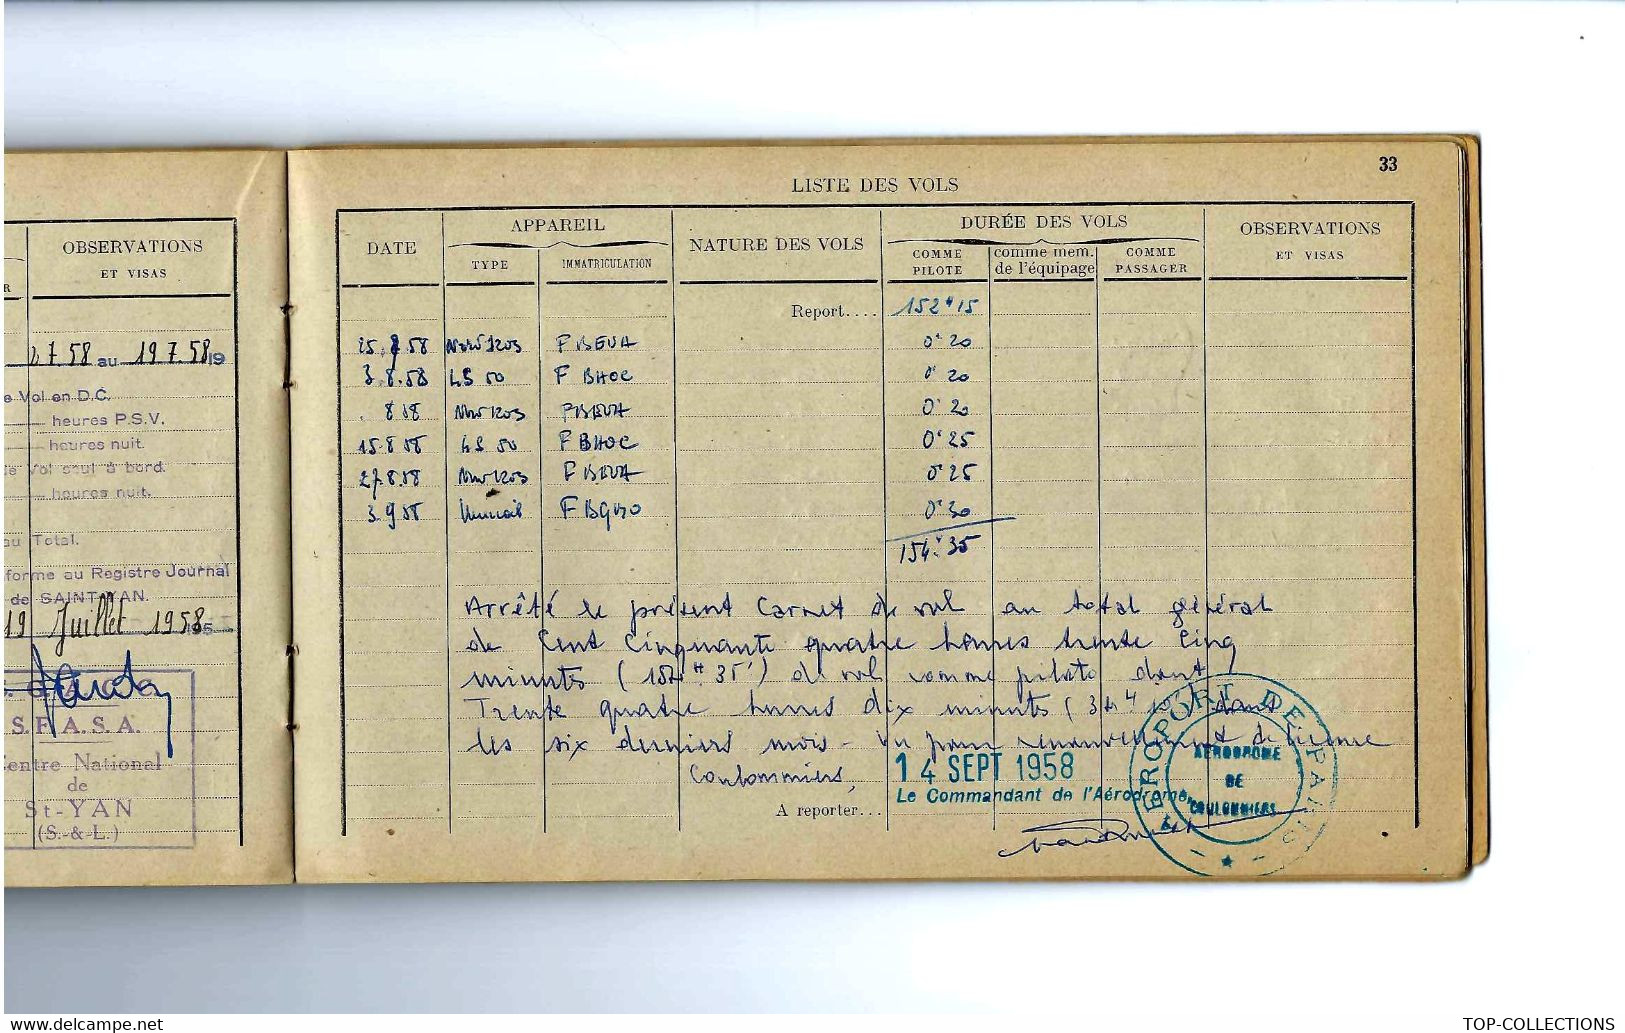 OBSERVATIONS
ET VISAS
R
2 7 58 au 19 7.58 19
e Vol en D.C.
heures P.S.V.
heures nuit.
de Vol seul à bord.
heures nuit.
au Total.
nforme au Registre Journal
de SAINT-YAN.
19 Juillet 1958 195
S.F.A.S.A.
Centre National
de
St-YAN
(S.-&-L.)
33
LISTE DES VOLS
DATE
APPAREIL
TYPE
IMMATRICULATION
NATURE DES VOLS
DURÉE DES VOLS
COMME PILOTE
comme mem. de l'équipage
COMME PASSAGER
OBSERVATIONS
ET VISAS
Report.... 152 H 15
25.7 58 Nord 1203 F BEUA 0h 20
3.8.58 LS 50 F BHOC 0h 20
. 8 58 Nord 1203 F BEUA 0h 20
15.8 58 LS 50 F BHOC 0h 25
27.8.58 Nord 1203 F BEUA 0h 25
3 9 58 0h 30
154 H 35
Arrêté le présent Carnet de vol au total général
de Cent Cinquante quatre heures trente Cinq
minutes (154 H 35') de vol comme pilote dont
Trente quatre heures dix minutes (34 H 10') dans
les six derniers mois - Vu pour renouvellement de licence
Coulommiers, 14 SEPT 1958
Le Commandant de l'Aérodrome,
A reporter...
AEROPORT DE PARIS
AÉRODROME
DE
COULOMMIERS
delcampe.net
TOP-COLLECTIONS